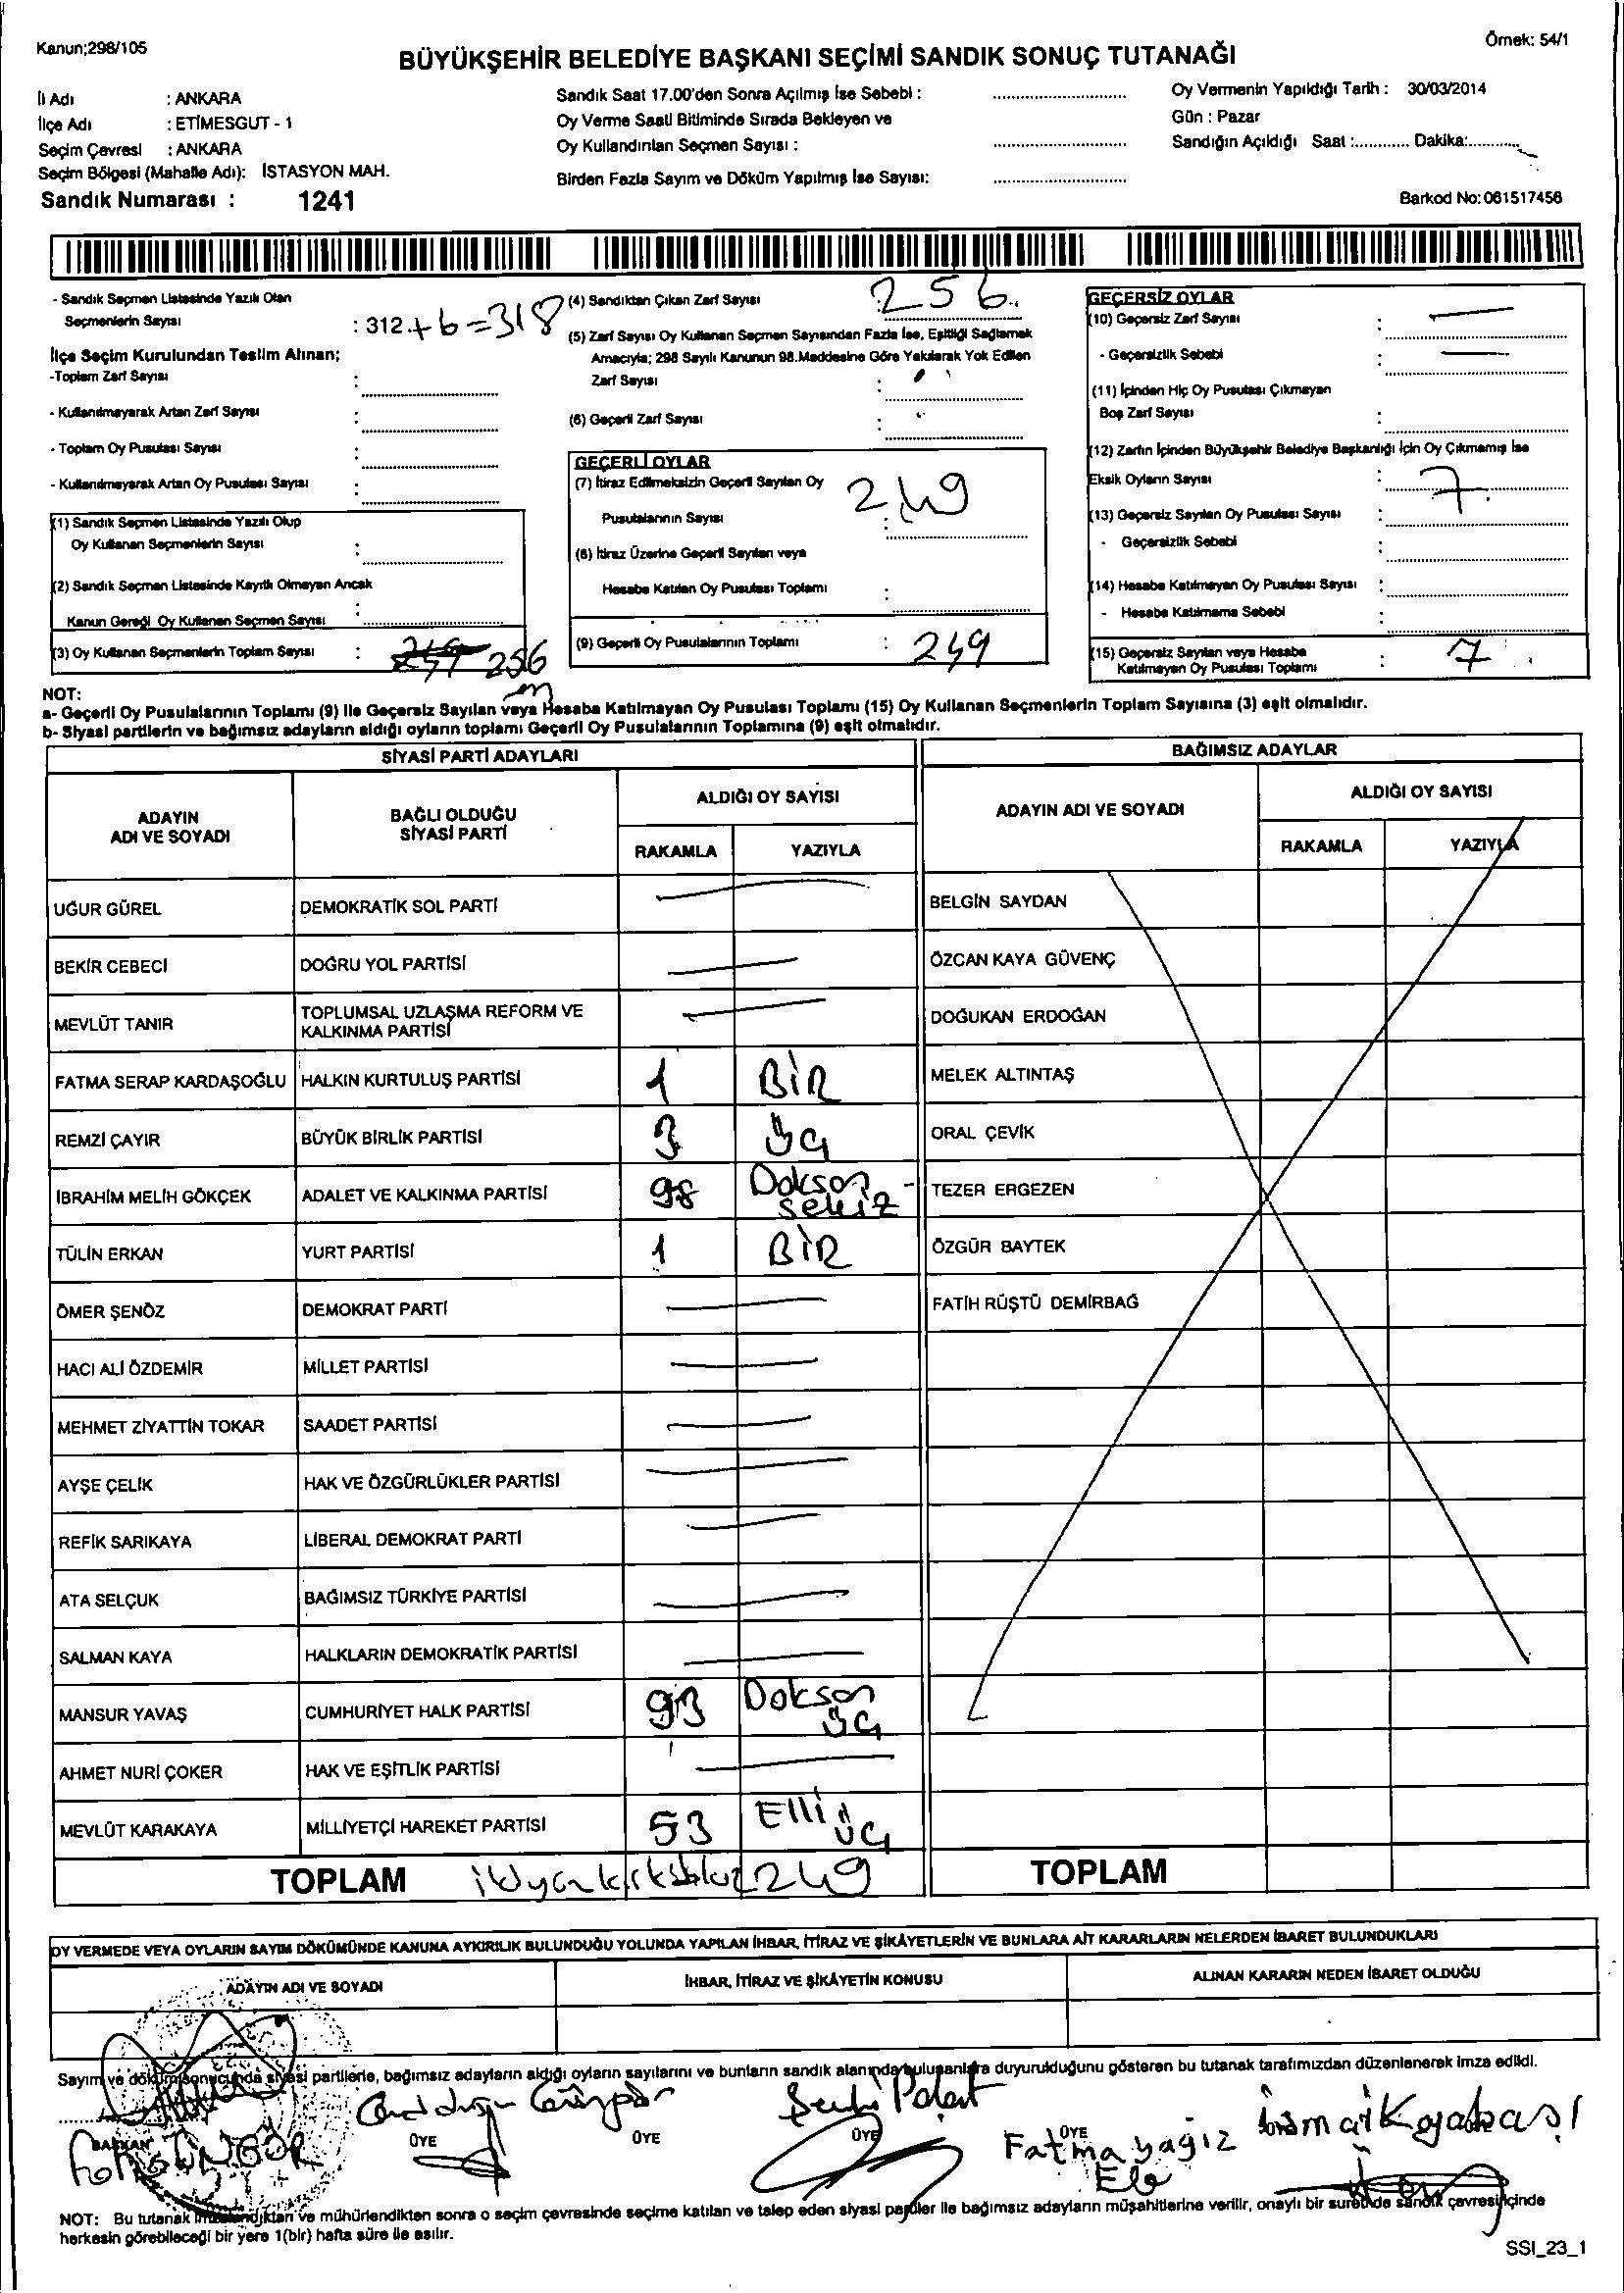 Kanun;298/105
Örnek: 54/1
BÜYÜKŞEHİR BELEDİYE BAŞKANI SEÇİMİ SANDIK SONUÇ TUTANAĞI
İl Adı : ANKARA
İlçe Adı : ETİMESGUT - 1
Seçim Çevresi : ANKARA
Seçim Bölgesi (Mahalle Adı): İSTASYON MAH.
Sandık Numarası : 1241
Sandık Saat 17.00'den Sonra Açılmış İse Sebebi :
Oy Verme Saati Bitiminde Sırada Bekleyen ve
Oy Kullandırılan Seçmen Sayısı :
Birden Fazla Sayım ve Döküm Yapılmış İse Sayısı:
Oy Vermenin Yapıldığı Tarih : 30/03/2014
Gün : Pazar
Sandığın Açıldığı Saat :............ Dakika:...........
Barkod No:061517456
- Sandık Seçmen Listesinde Yazılı Olan
Seçmenlerin Sayısı : 312 + 6 = 318
İlçe Seçim Kurulundan Teslim Alınan;
-Toplam Zarf Sayısı :
- Kullanılmayarak Artan Zarf Sayısı :
- Toplam Oy Pusulası Sayısı :
- Kullanılmayarak Artan Oy Pusulası Sayısı :
(1) Sandık Seçmen Listesinde Yazılı Olup
Oy Kullanan Seçmenlerin Sayısı :
(2) Sandık Seçmen Listesinde Kayıtlı Olmayan Ancak
Kanun Gereği Oy Kullanan Seçmen Sayısı :
(3) Oy Kullanan Seçmenlerin Toplam Sayısı : 249 256
(4) Sandıktan Çıkan Zarf Sayısı : 256
(5) Zarf Sayısı Oy Kullanan Seçmen Sayısından Fazla İse, Eşitliği Sağlamak
Amacıyla; 298 Sayılı Kanunun 98.Maddesine Göre Yakılarak Yok Edilen
Zarf Sayısı :
(6) Geçerli Zarf Sayısı :
GEÇERLİ OYLAR
(7) İtiraz Edilmeksizin Geçerli Sayılan Oy
Pusulalarının Sayısı : 249
(8) İtiraz Üzerine Geçerli Sayılan veya
Hesaba Katılan Oy Pusulası Toplamı :
(9) Geçerli Oy Pusulalarının Toplamı : 249
GEÇERSİZ OYLAR
(10) Geçersiz Zarf Sayısı : —
- Geçersizlik Sebebi : —
(11) İçinden Hiç Oy Pusulası Çıkmayan
Boş Zarf Sayısı :
(12) Zarfın İçinden Büyükşehir Belediye Başkanlığı İçin Oy Çıkmamış İse
Eksik Oyların Sayısı : 7
(13) Geçersiz Sayılan Oy Pusulası Sayısı :
- Geçersizlik Sebebi :
(14) Hesaba Katılmayan Oy Pusulası Sayısı :
- Hesaba Katılmama Sebebi :
(15) Geçersiz Sayılan veya Hesaba
Katılmayan Oy Pusulası Toplamı : 7
NOT:
a- Geçerli Oy Pusulalarının Toplamı (9) ile Geçersiz Sayılan veya Hesaba Katılmayan Oy Pusulası Toplamı (15) Oy Kullanan Seçmenlerin Toplam Sayısına (3) eşit olmalıdır.
b- Siyasi partilerin ve bağımsız adayların aldığı oyların toplamı Geçerli Oy Pusulalarının Toplamına (9) eşit olmalıdır.
SİYASİ PARTİ ADAYLARI
ADAYIN ADI VE SOYADI
BAĞLI OLDUĞU SİYASİ PARTİ
ALDIĞI OY SAYISI
RAKAMLA YAZIYLA
UĞUR GÜREL DEMOKRATİK SOL PARTİ —
BEKİR CEBECİ DOĞRU YOL PARTİSİ —
MEVLÜT TANIR TOPLUMSAL UZLAŞMA REFORM VE KALKINMA PARTİSİ —
FATMA SERAP KARDAŞOĞLU HALKIN KURTULUŞ PARTİSİ 1 BİR
REMZİ ÇAYIR BÜYÜK BİRLİK PARTİSİ 3 üç
İBRAHİM MELİH GÖKÇEK ADALET VE KALKINMA PARTİSİ 98 Doksan sekiz
TÜLİN ERKAN YURT PARTİSİ 1 BİR
ÖMER ŞENÖZ DEMOKRAT PARTİ —
HACI ALİ ÖZDEMİR MİLLET PARTİSİ —
MEHMET ZİYATTİN TOKAR SAADET PARTİSİ —
AYŞE ÇELİK HAK VE ÖZGÜRLÜKLER PARTİSİ —
REFİK SARIKAYA LİBERAL DEMOKRAT PARTİ —
ATA SELÇUK BAĞIMSIZ TÜRKİYE PARTİSİ —
SALMAN KAYA HALKLARIN DEMOKRATİK PARTİSİ —
MANSUR YAVAŞ CUMHURİYET HALK PARTİSİ 93 Doksan üç
AHMET NURİ ÇOKER HAK VE EŞİTLİK PARTİSİ —
MEVLÜT KARAKAYA MİLLİYETÇİ HAREKET PARTİSİ 53 Elli üç
TOPLAM ikiyüzkırkdokuz 249
BAĞIMSIZ ADAYLAR
ADAYIN ADI VE SOYADI
ALDIĞI OY SAYISI
RAKAMLA YAZIYLA
BELGİN SAYDAN
ÖZCAN KAYA GÜVENÇ
DOĞUKAN ERDOĞAN
MELEK ALTINTAŞ
ORAL ÇEVİK
TEZER ERGEZEN
ÖZGÜR BAYTEK
FATİH RÜŞTÜ DEMİRBAĞ
TOPLAM
OY VERMEDE VEYA OYLARIN SAYIM DÖKÜMÜNDE KANUNA AYKIRILIK BULUNDUĞU YOLUNDA YAPILAN İHBAR, İTİRAZ VE ŞİKÂYETLERİN VE BUNLARA AİT KARARLARIN NELERDEN İBARET BULUNDUKLARI
ADAYIN ADI VE SOYADI
İHBAR, İTİRAZ VE ŞİKÂYETİN KONUSU
ALINAN KARARIN NEDEN İBARET OLDUĞU
Sayım ve döküm sonucunda siyasi partilerle, bağımsız adayların aldığı oyların sayılarını ve bunların sandık alanında bulunanlara duyurulduğunu gösteren bu tutanak tarafımızdan düzenlenerek imza edildi.
BAŞKAN
ÜYE
ÜYE
ÜYE
ÜYE
Fatma yağız
NOT: Bu tutanak imzalandıktan ve mühürlendikten sonra o seçim çevresinde seçime katılan ve talep eden siyasi partiler ile bağımsız adayların müşahitlerine verilir, onaylı bir suretide sandık çevresi içinde
herkesin görebileceği bir yere 1(bir) hafta süre ile asılır.
SSI_23_1